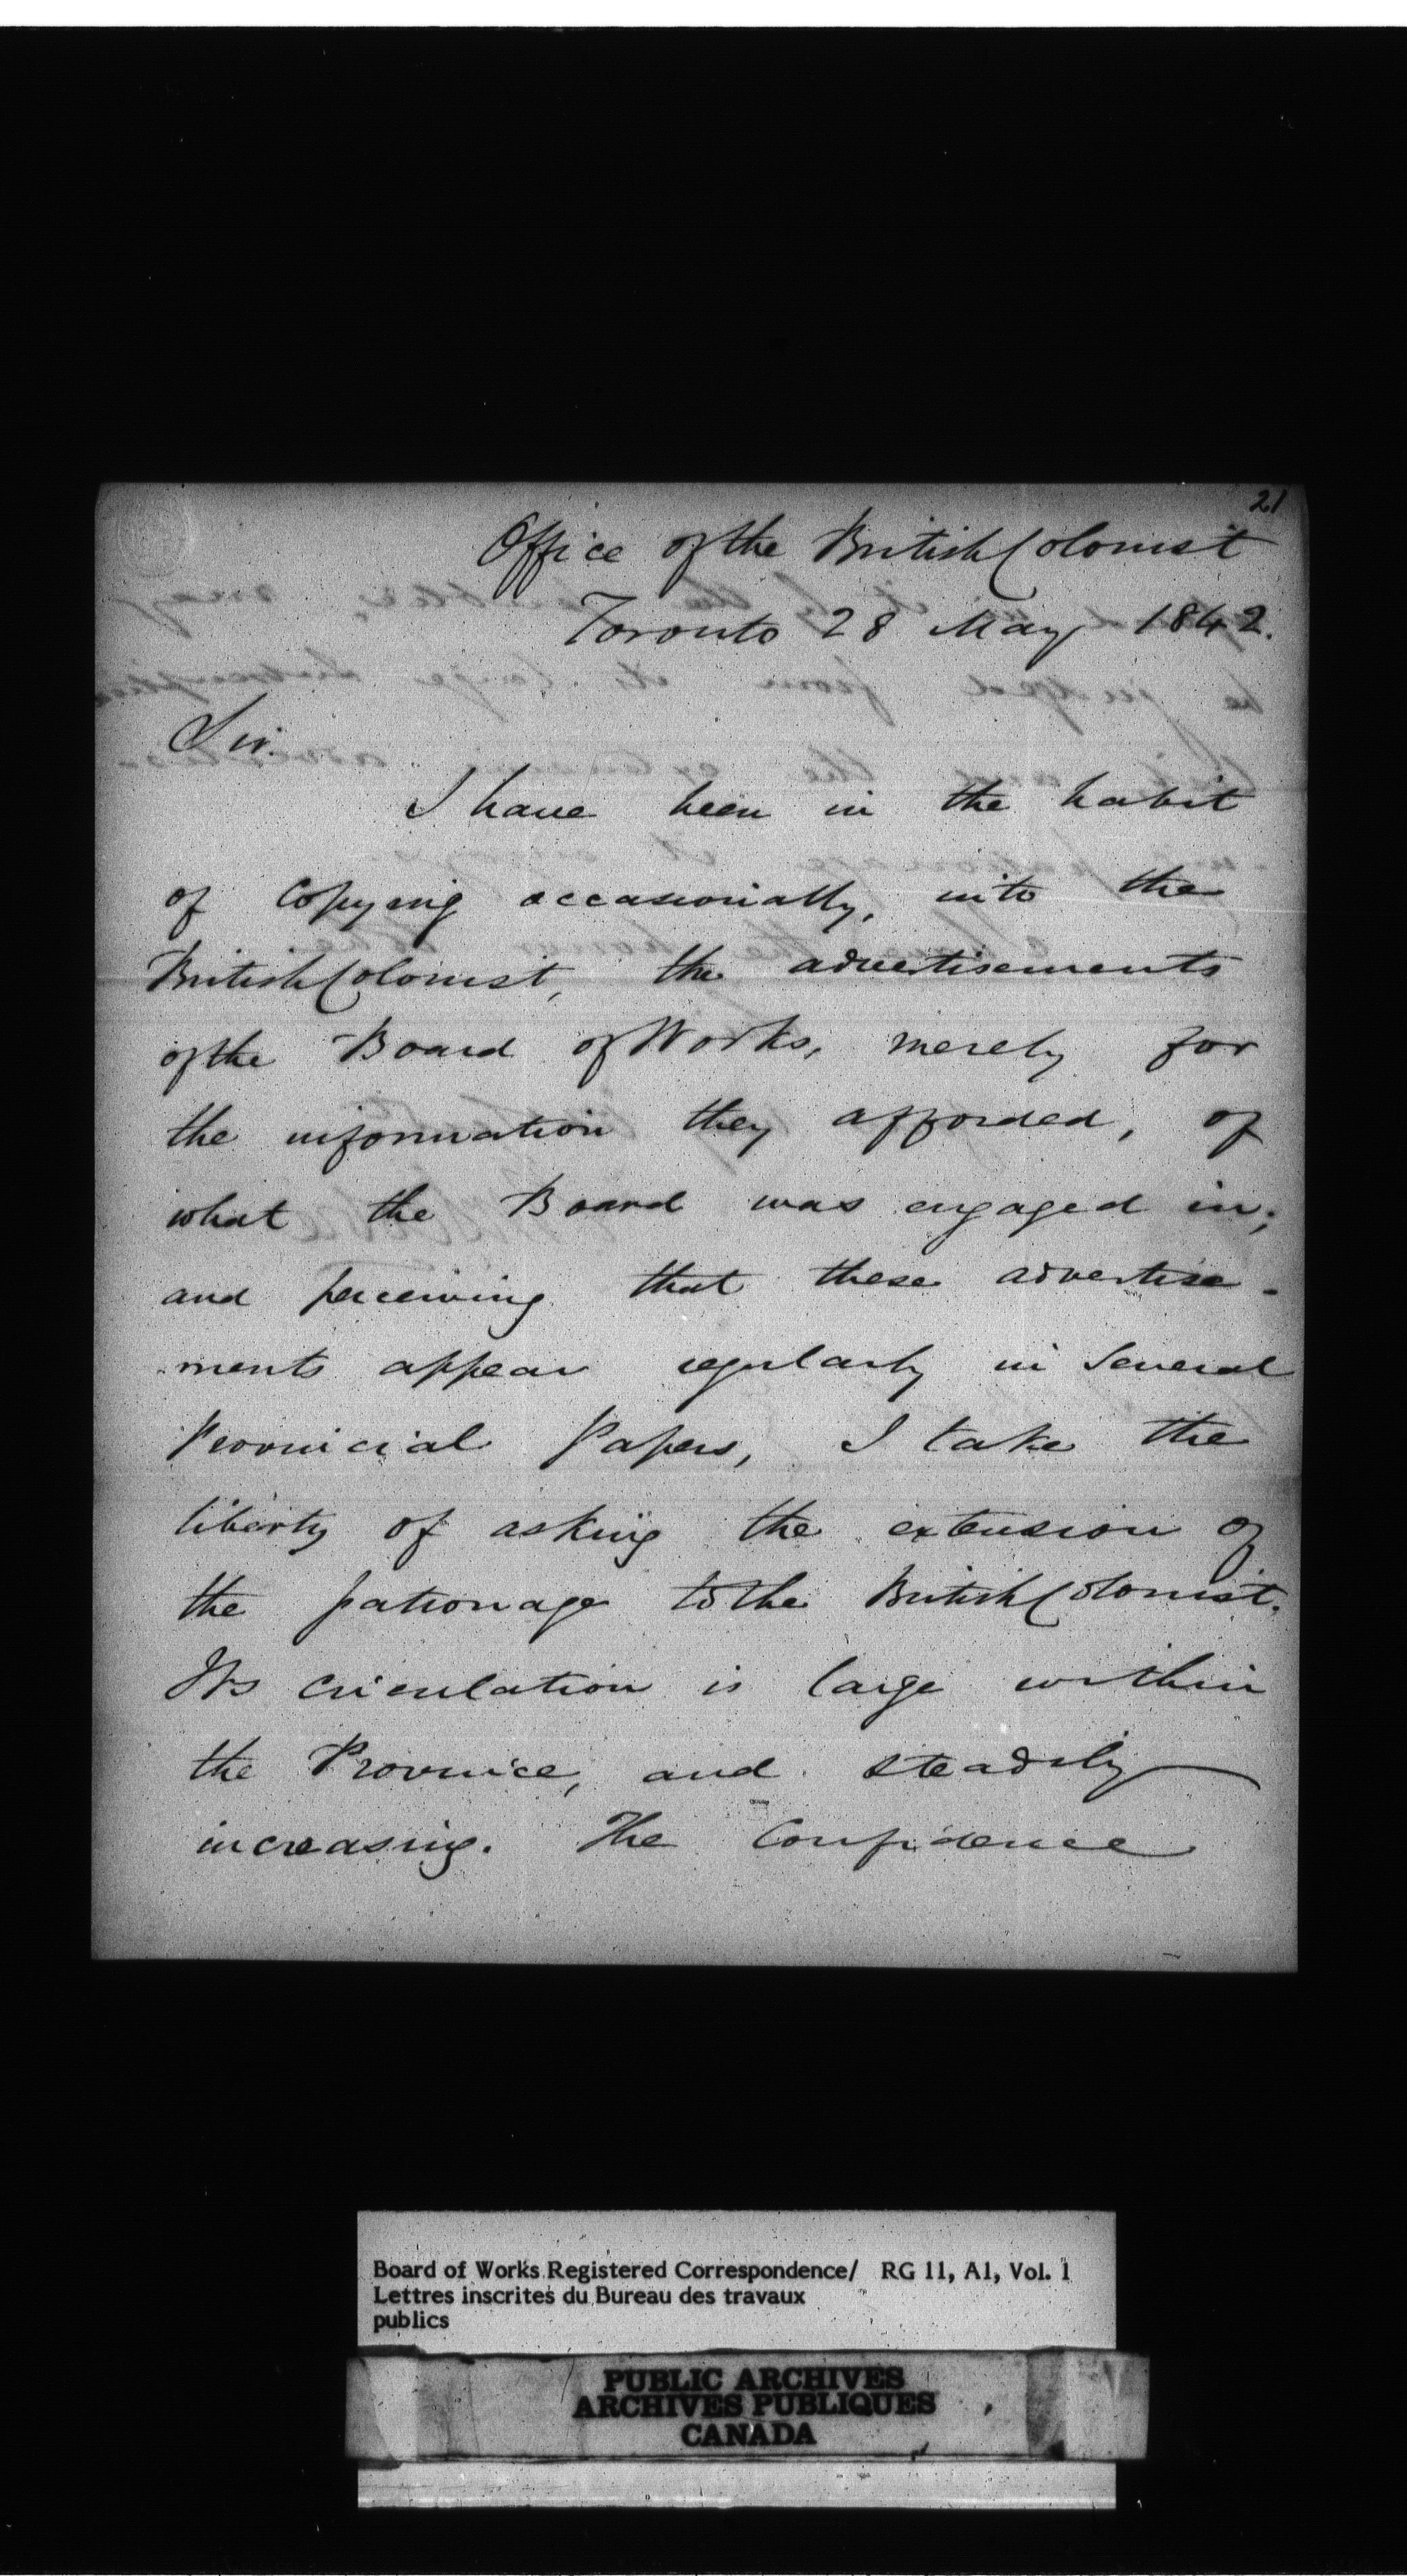 21
Office of the British Colonist
Toronto 28 May 1842.
Sir.
I have been in the habit
of Copying occasionally, into the
British Colonist, the advertisements
of the Board of Works, merely for
the information they afforded, of
what the Board was engaged in;
and perceiving that these advertise-
ments appear regularly in several
Provincial Papers, I take the
liberty of asking the extension of
the patronage to the British Colonist.
Its circulation is large within
the Province, and steadily
increasing. The Confidence
Board of Works Registered Correspondence/ RG 11, A1, Vol. 1
Lettres inscrites du Bureau des travaux
publics
PUBLIC ARCHIVES
ARCHIVES PUBLIQUES
CANADA